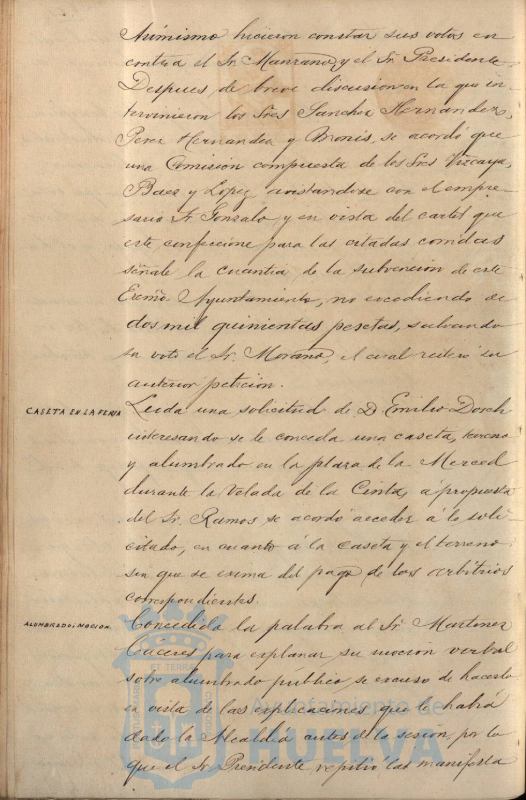 Asimismo hicieron constar sus votos en
contra el Sr. Manzano y el Sr. Presidente.
Despues de breve discusion en la que in-
tervinieron los Sres Sanchez Hernandez,
Perez Hernandez y Bronis, se acordo que
una Comisión compuesta de los Sres Vizcaya,
Baez y Lopez, avistandose con el empre-
sario Sr. Gonzalo y en vista del cartel que
este confeccione para las citadas corridas
señale la cuantia de la subvencion de este
Excmo Ayuntamiento, no excediendo de
dos mil quinientas pesetas, salvando
su voto el Sr. Morano, el cual reiteró su
anterior petición.
CASETA EN LA FERIA
Leida una solicitud de D. Emilio Dorch
interesando se le conceda una caseta, terreno
y alumbrado en la plaza de la Merced
durante la Velada de la Cinta, á propuesta
del Sr. Ramos se acordó acceder á lo soli-
citado, en cuanto á la caseta y el terreno
sin que se exima del pago de los arbitrios
correspondientes.
ALUMBRADO; MOCION.
Concedida la palabra al Sr. Martinez
Cáceres para explanar su mocion verbal
sobre alumbrado publico, se excuso de hacerlo
en vista de las explicaciones que le habrá
dado la Alcaldia antes de la sesion, por lo
que el Sr. Presidente repitió las manifesta
Ayuntamiento de
HUELVA